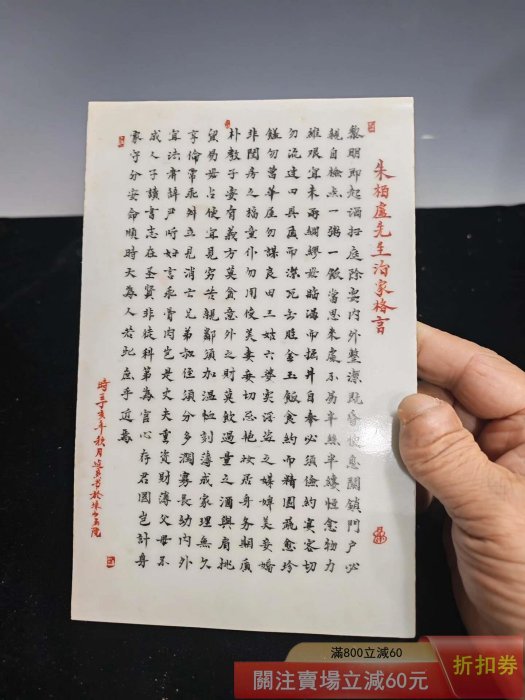 朱柏盧先生治家格言
黎明即起洒扫庭除要内外整潔既昏便息關鎖門户必
親自檢点一粥一飯當思来處不易半絲半縷恒念物力
維艰宜未雨綢繆毋臨渴而掘井自奉必須儉約宴客切
勿流連器具質而潔瓦缶胜金玉飯食約而精園蔬愈珍
饈勿营華屋勿謀良田三姑六婆实淫盗之媒婢美妾嬌
非閨房之福童仆勿用俊美妻妾切忌艳妆居身务期質
朴教子要有義方莫貪意外之財莫飲過量之酒與肩挑
貿易毋占便宜見穷苦親鄰須加温恤刻薄成家理無久
享倫常乖舛立見消亡兄弟叔侄須分多潤寡長幼内外
宜法肃辞严听妇言乖骨肉岂是丈夫重資財薄父母不
成人子讀書志在圣賢非徒科第為官心存君國岂計身
家守分安命順時天為人若此庶乎近焉
時在丁亥年秋月书於珠山画院
滿800立減60
關注賣場立減60元
折扣券